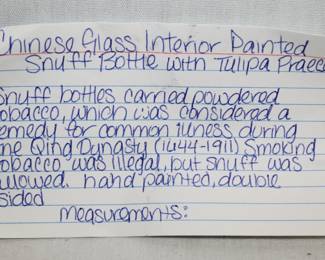 Chinese Glass Interior Painted
Snuff Bottle with Tulipa Praec
Snuff bottles carried powdered
tobacco, which was considered a
remedy for common illness during
the Qing Dynasty (1644-1911) Smoking
tobacco was illegal, but snuff was
allowed. hand painted, double
sided
measurements: